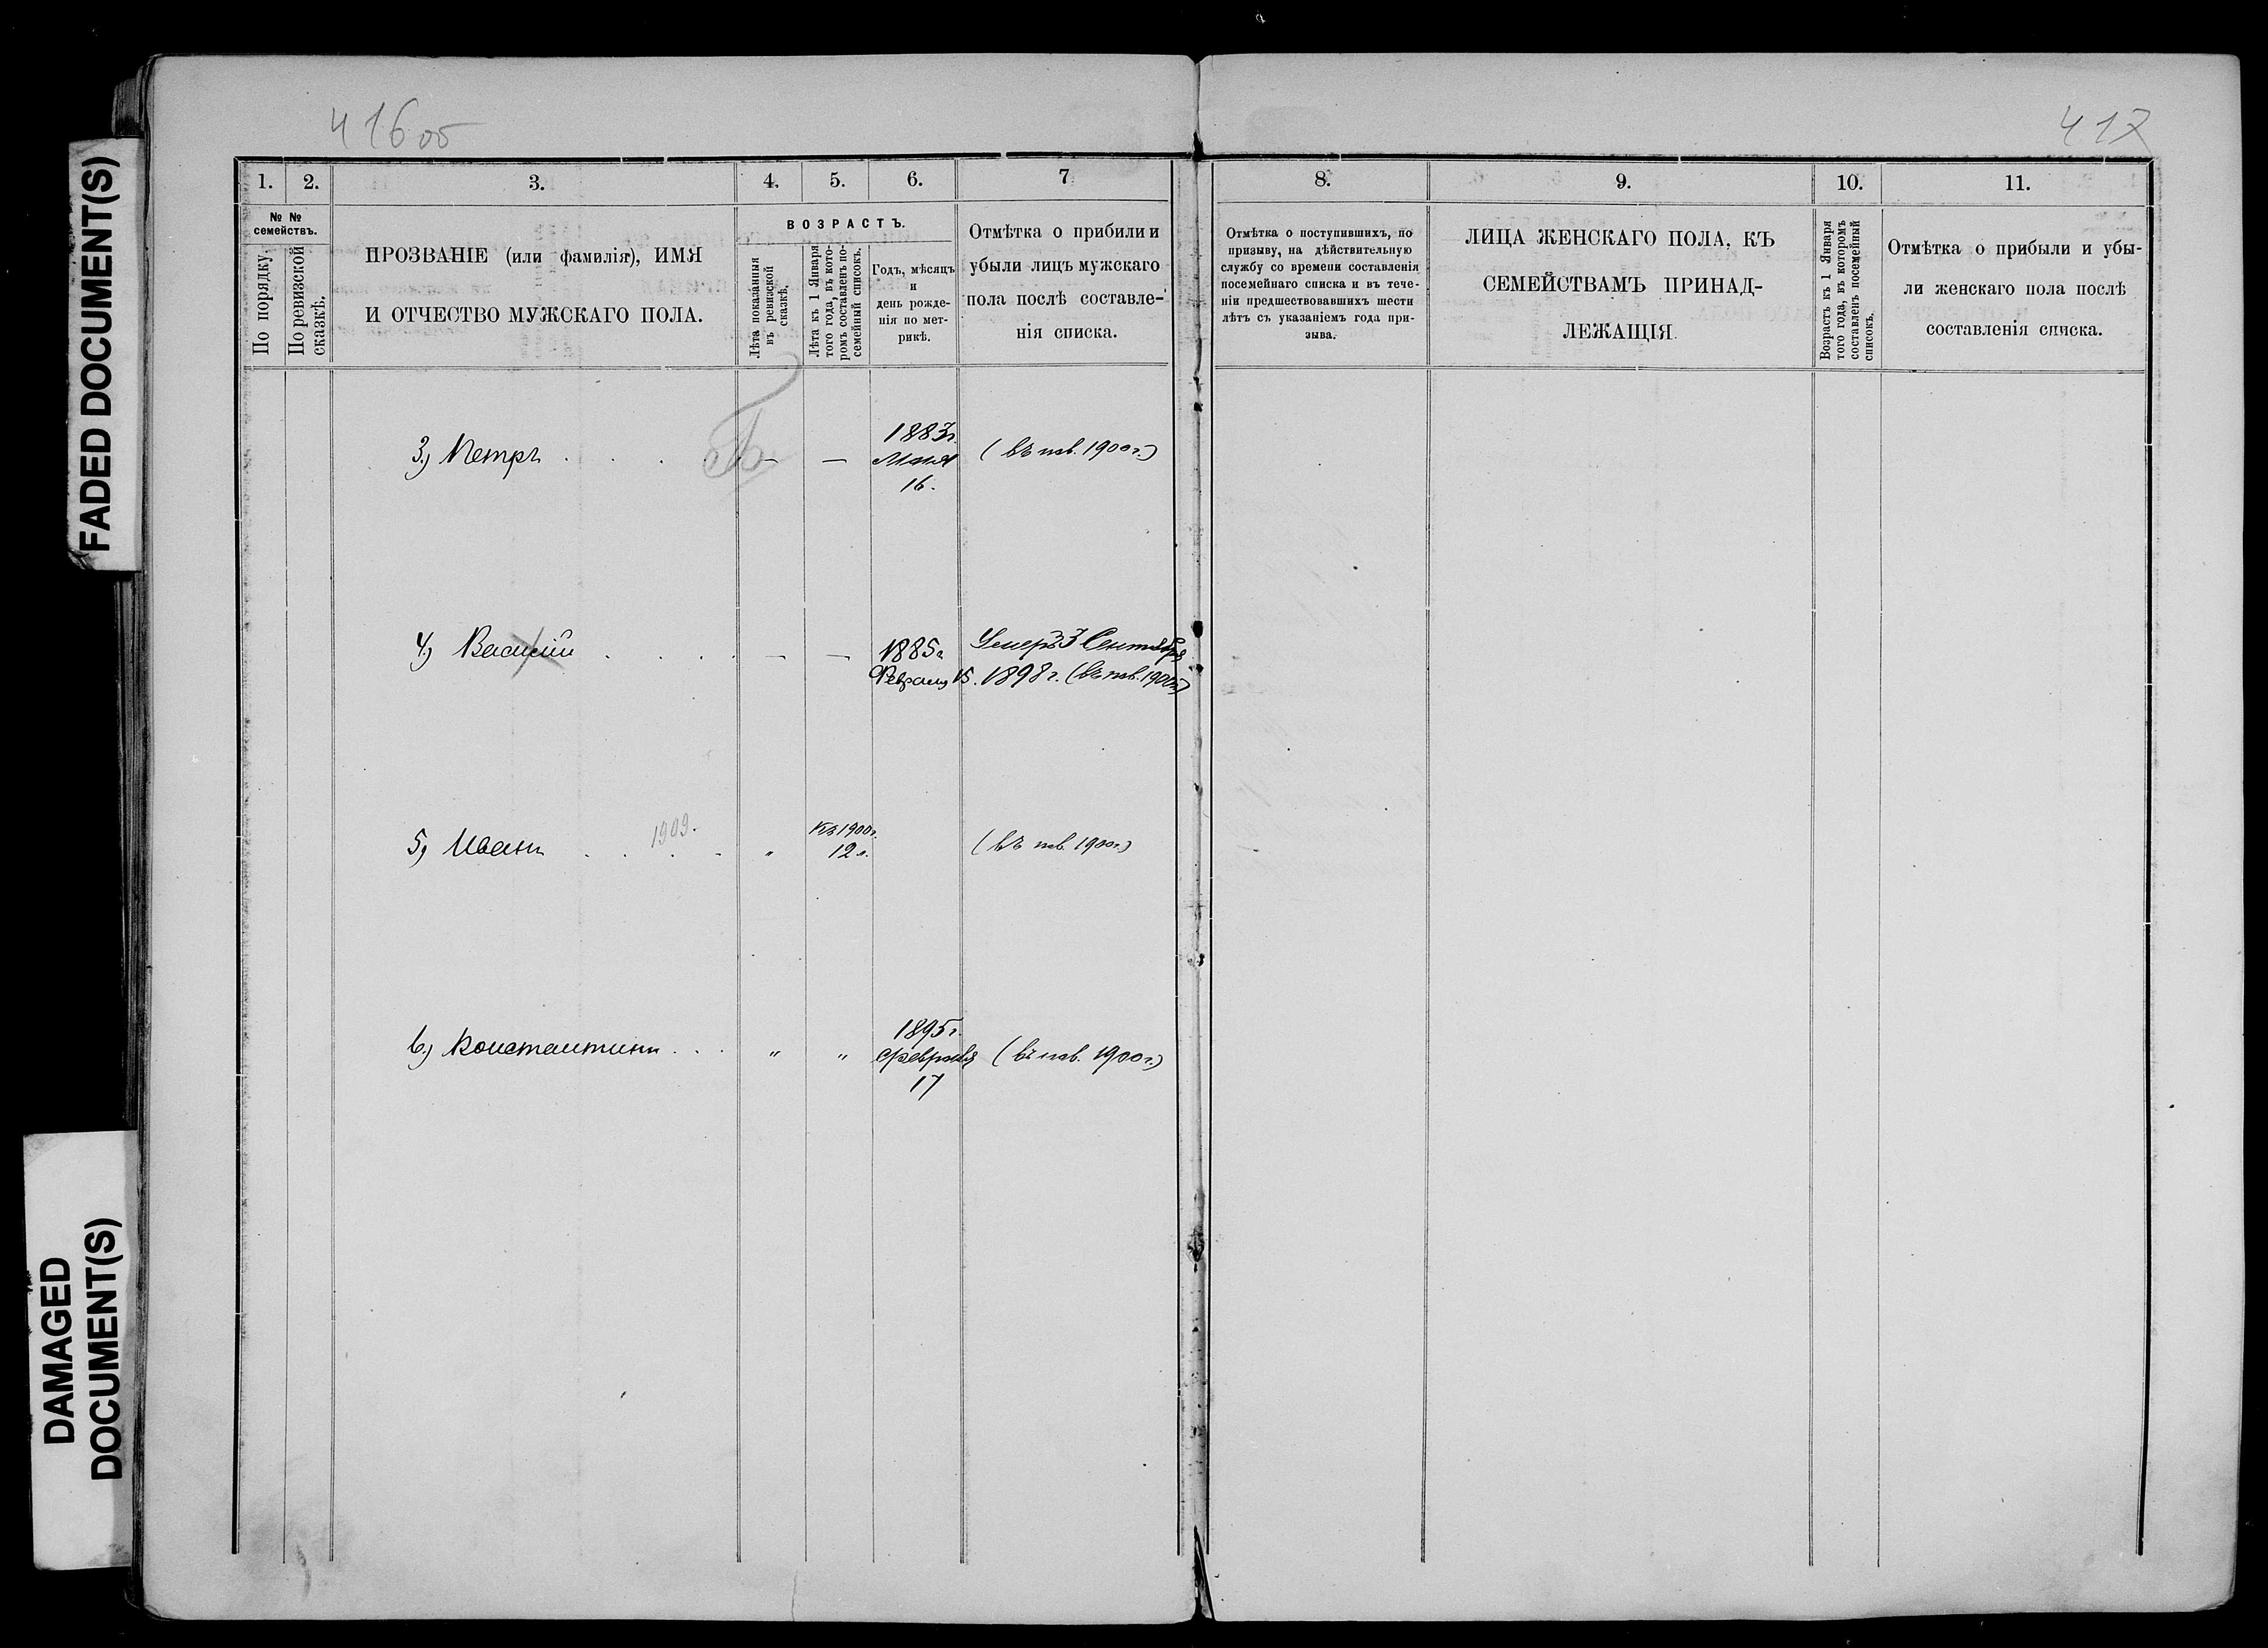 FADED DOCUMENT(S)
DAMAGED
DOCUMENT(S)
416об
417
1.
2.
3.
4.
5.
6.
7
8.
9.
10.
11.
№ №
семействъ.
По порядку.
По ревизской
сказкѣ.
ПРОЗВАНІЕ (или фамилія), ИМЯ
И ОТЧЕСТВО МУЖСКАГО ПОЛА.
ВОЗРАСТЪ.
Лѣта показанныя
въ ревизской
сказкѣ.
Лѣта къ 1 Января
того года, въ кото-
ромъ составленъ по-
семейный списокъ.
Годъ, мѣсяцъ
и
день рожде-
нія по мет-
рикѣ.
Отмѣтка о прибыли и
убыли лицъ мужскаго
пола послѣ составле-
нія списка.
Отмѣтка о поступившихъ, по
призыву, на дѣйствительную
службу со времени составленія
посемейнаго списка и въ тече-
ніи предшествовавшихъ шести
лѣтъ съ указаніемъ года при-
зыва.
ЛИЦА ЖЕНСКАГО ПОЛА, КЪ
СЕМЕЙСТВАМЪ ПРИНАД-
ЛЕЖАЩІЯ.
Возрастъ къ 1 Января
того года, въ которомъ
составленъ посемейный
списокъ.
Отмѣтка о прибыли и убы-
ли женскаго пола послѣ
составленія списка.
3.) Петръ . . . — — 1883г. (въ пов. 1900г.)
Мая
16.
4.) Василій . . . — — 1885г. Умеръ 3 Сентября
Февраля 15. 1898г. (въ пов. 1900г.)
1909.
5) Иванъ . . . . „ Къ 1900г. (въ пов. 1900г.)
12 л.
6.) Константинъ . . . „ „ 1895г.
Февраля (въ пов. 1900г.)
17